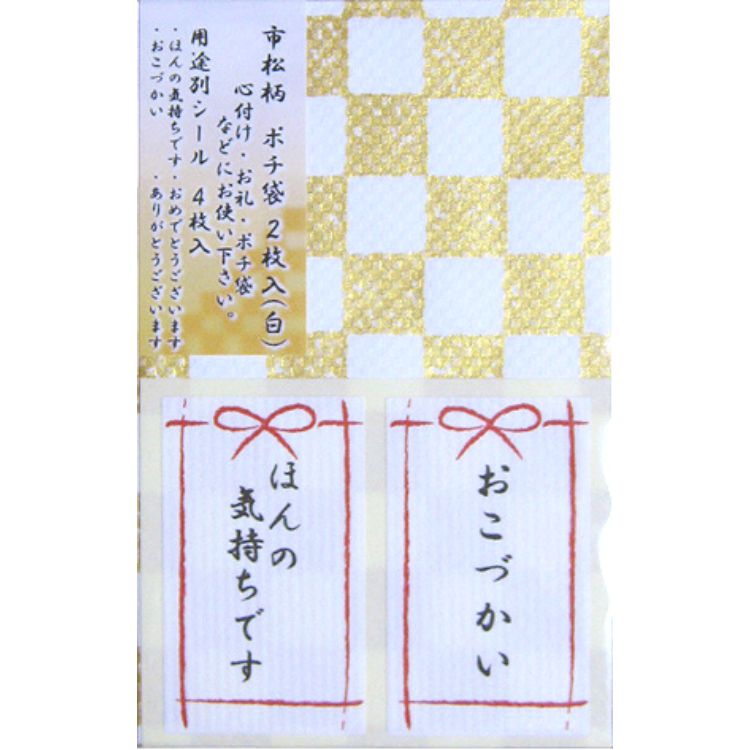 市松柄 ポチ袋 2枚入(白)
心付け・お礼・ポチ袋
などにお使い下さい。
用途別シール 4枚入
・ほんの気持ちです・おめでとうございます
・おこづかい ・ありがとうございます
ほんの
気持ちです
おこづかい